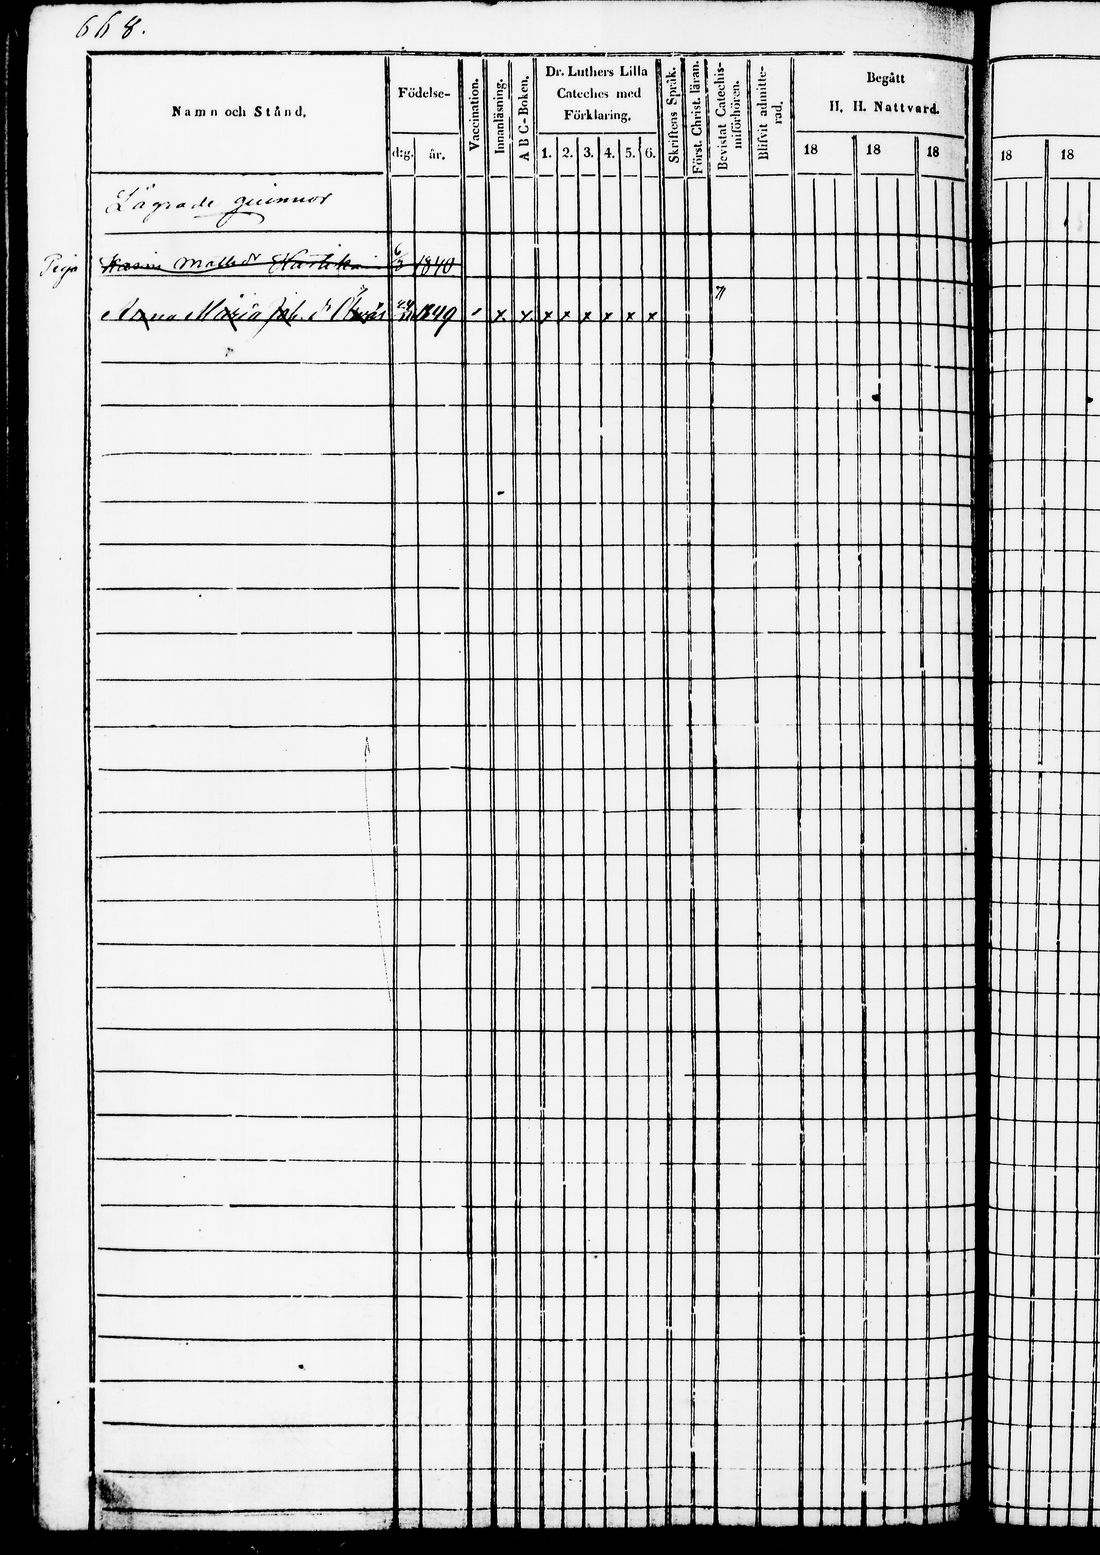 668.
Namn och Stånd.
Födelse-
d:g. år.
Vaccination.
Innanläsning.
A B C-Boken.
Dr. Luthers Lilla
Cateches med
Förklaring.
1. 2. 3. 4. 5. 6.
Skriftens Språk.
Först. Christ. läran.
Bevistat Catechis-
miförhören.
Blifvit admitte-
rad.
Begått
H. H. Nattvard.
18 18 18
18 18
Lägrade quinnor
6/3 1840
Anna Maria Joh. dr 1849 x x x x x x x x